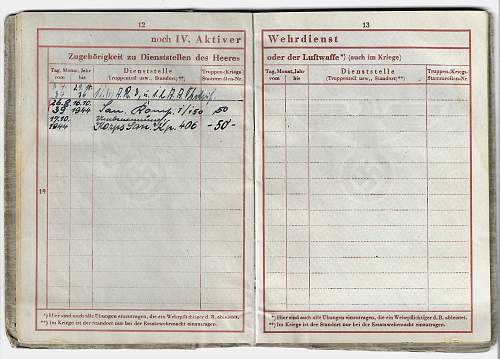 12
noch IV. Aktiver
Zugehörigkeit zu Dienststellen des Heeres
Tag, Monat, Jahr
vom | bis
Dienststelle
(Truppenteil usw., Standort)**)
Truppen-/Kriegs-
Stammrollen-Nr.
26.8. 16.10.
39 1944 San. Komp. 1/150 50
17.10.
1944 Korps San. Kp. 406 -50-
19
*) Hier sind auch alle Übungen einzutragen, die ein Wehrpflichtiger d. B. ableistet.
**) Im Kriege ist der Standort nur bei der Ersatzwehrmacht einzutragen.
13
Wehrdienst
oder der Luftwaffe*) (auch im Kriege)
Tag, Monat, Jahr
vom | bis
Dienststelle
(Truppenteil usw., Standort)**)
Truppen-/Kriegs-
Stammrollen-Nr.
*) Hier sind auch alle Übungen einzutragen, die ein Wehrpflichtiger d. B. ableistet.
**) Im Kriege ist der Standort nur bei der Ersatzwehrmacht einzutragen.